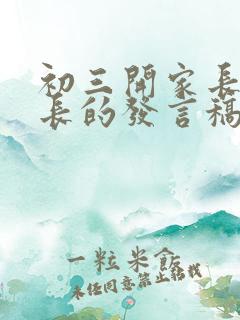 初三開家長
長的發言稿
一粒米飯
未经同意禁止转载